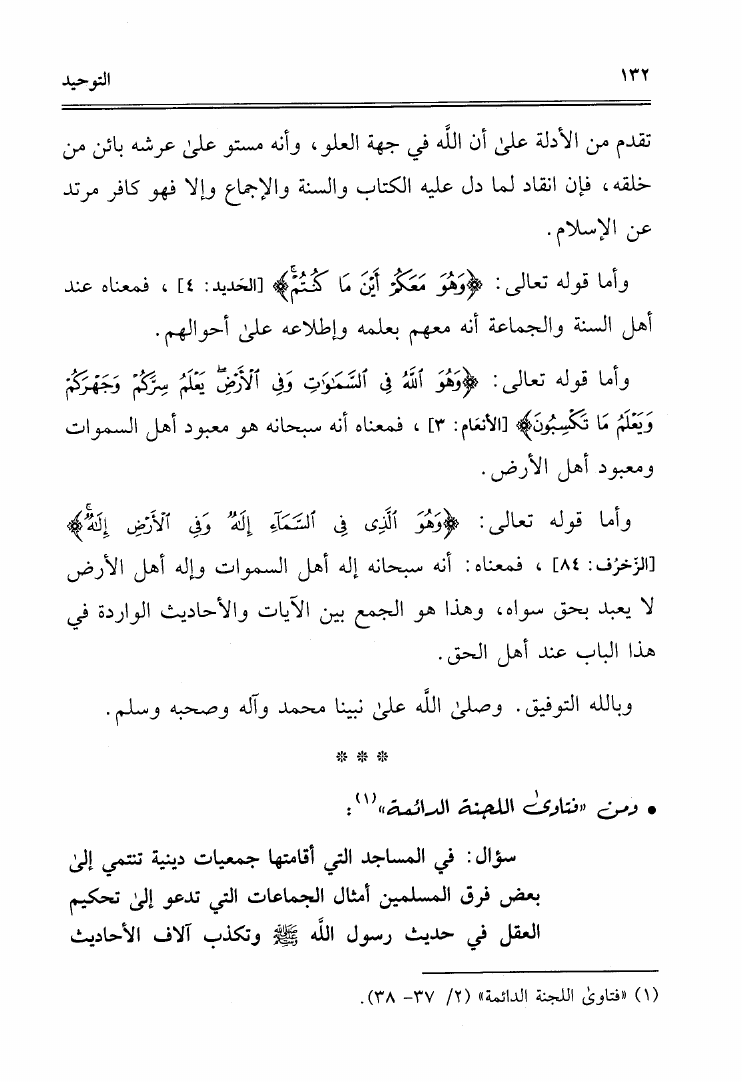 ١٣٢ التوحيد
تقدم من الأدلة علىٰ أن اللَّه في جهة العلو، وأنه مستو علىٰ عرشه بائن من
خلقه، فإن انقاد لما دل عليه الكتاب والسنة والإجماع وإلا فهو كافر مرتد
عن الإسلام.
وأما قوله تعالى: ﴿وَهُوَ مَعَكُمْ أَيْنَ مَا كُنتُمْۚ﴾ [الحَديد: ٤] ، فمعناه عند
أهل السنة والجماعة أنه معهم بعلمه وإطلاعه علىٰ أحوالهم.
وأما قوله تعالى: ﴿وَهُوَ ٱللَّهُ فِى ٱلسَّمَٰوَٰتِ وَفِى ٱلْأَرْضِۖ يَعْلَمُ سِرَّكُمْ وَجَهْرَكُمْ
وَيَعْلَمُ مَا تَكْسِبُونَ﴾ [الأنعَام: ٣] ، فمعناه أنه سبحانه هو معبود أهل السموات
ومعبود أهل الأرض.
وأما قوله تعالى: ﴿وَهُوَ ٱلَّذِى فِى ٱلسَّمَآءِ إِلَٰهٌ وَفِى ٱلْأَرْضِ إِلَٰهٌۚ﴾
[الزّخرُف: ٨٤] ، فمعناه: أنه سبحانه إله أهل السموات وإله أهل الأرض
لا يعبد بحق سواه، وهذا هو الجمع بين الآيات والأحاديث الواردة في
هذا الباب عند أهل الحق.
وبالله التوفيق. وصلىٰ اللَّه علىٰ نبينا محمد وآله وصحبه وسلم.
* * *
• ومن «فتاوىٰ اللجنة الدائمة»(١):
سؤال: في المساجد التي أقامتها جمعيات دينية تنتمي إلىٰ
بعض فرق المسلمين أمثال الجماعات التي تدعو إلىٰ تحكيم
العقل في حديث رسول اللَّه ﷺ وتكذب آلاف الأحاديث
(١) «فتاوىٰ اللجنة الدائمة» (٢/ ٣٧- ٣٨).